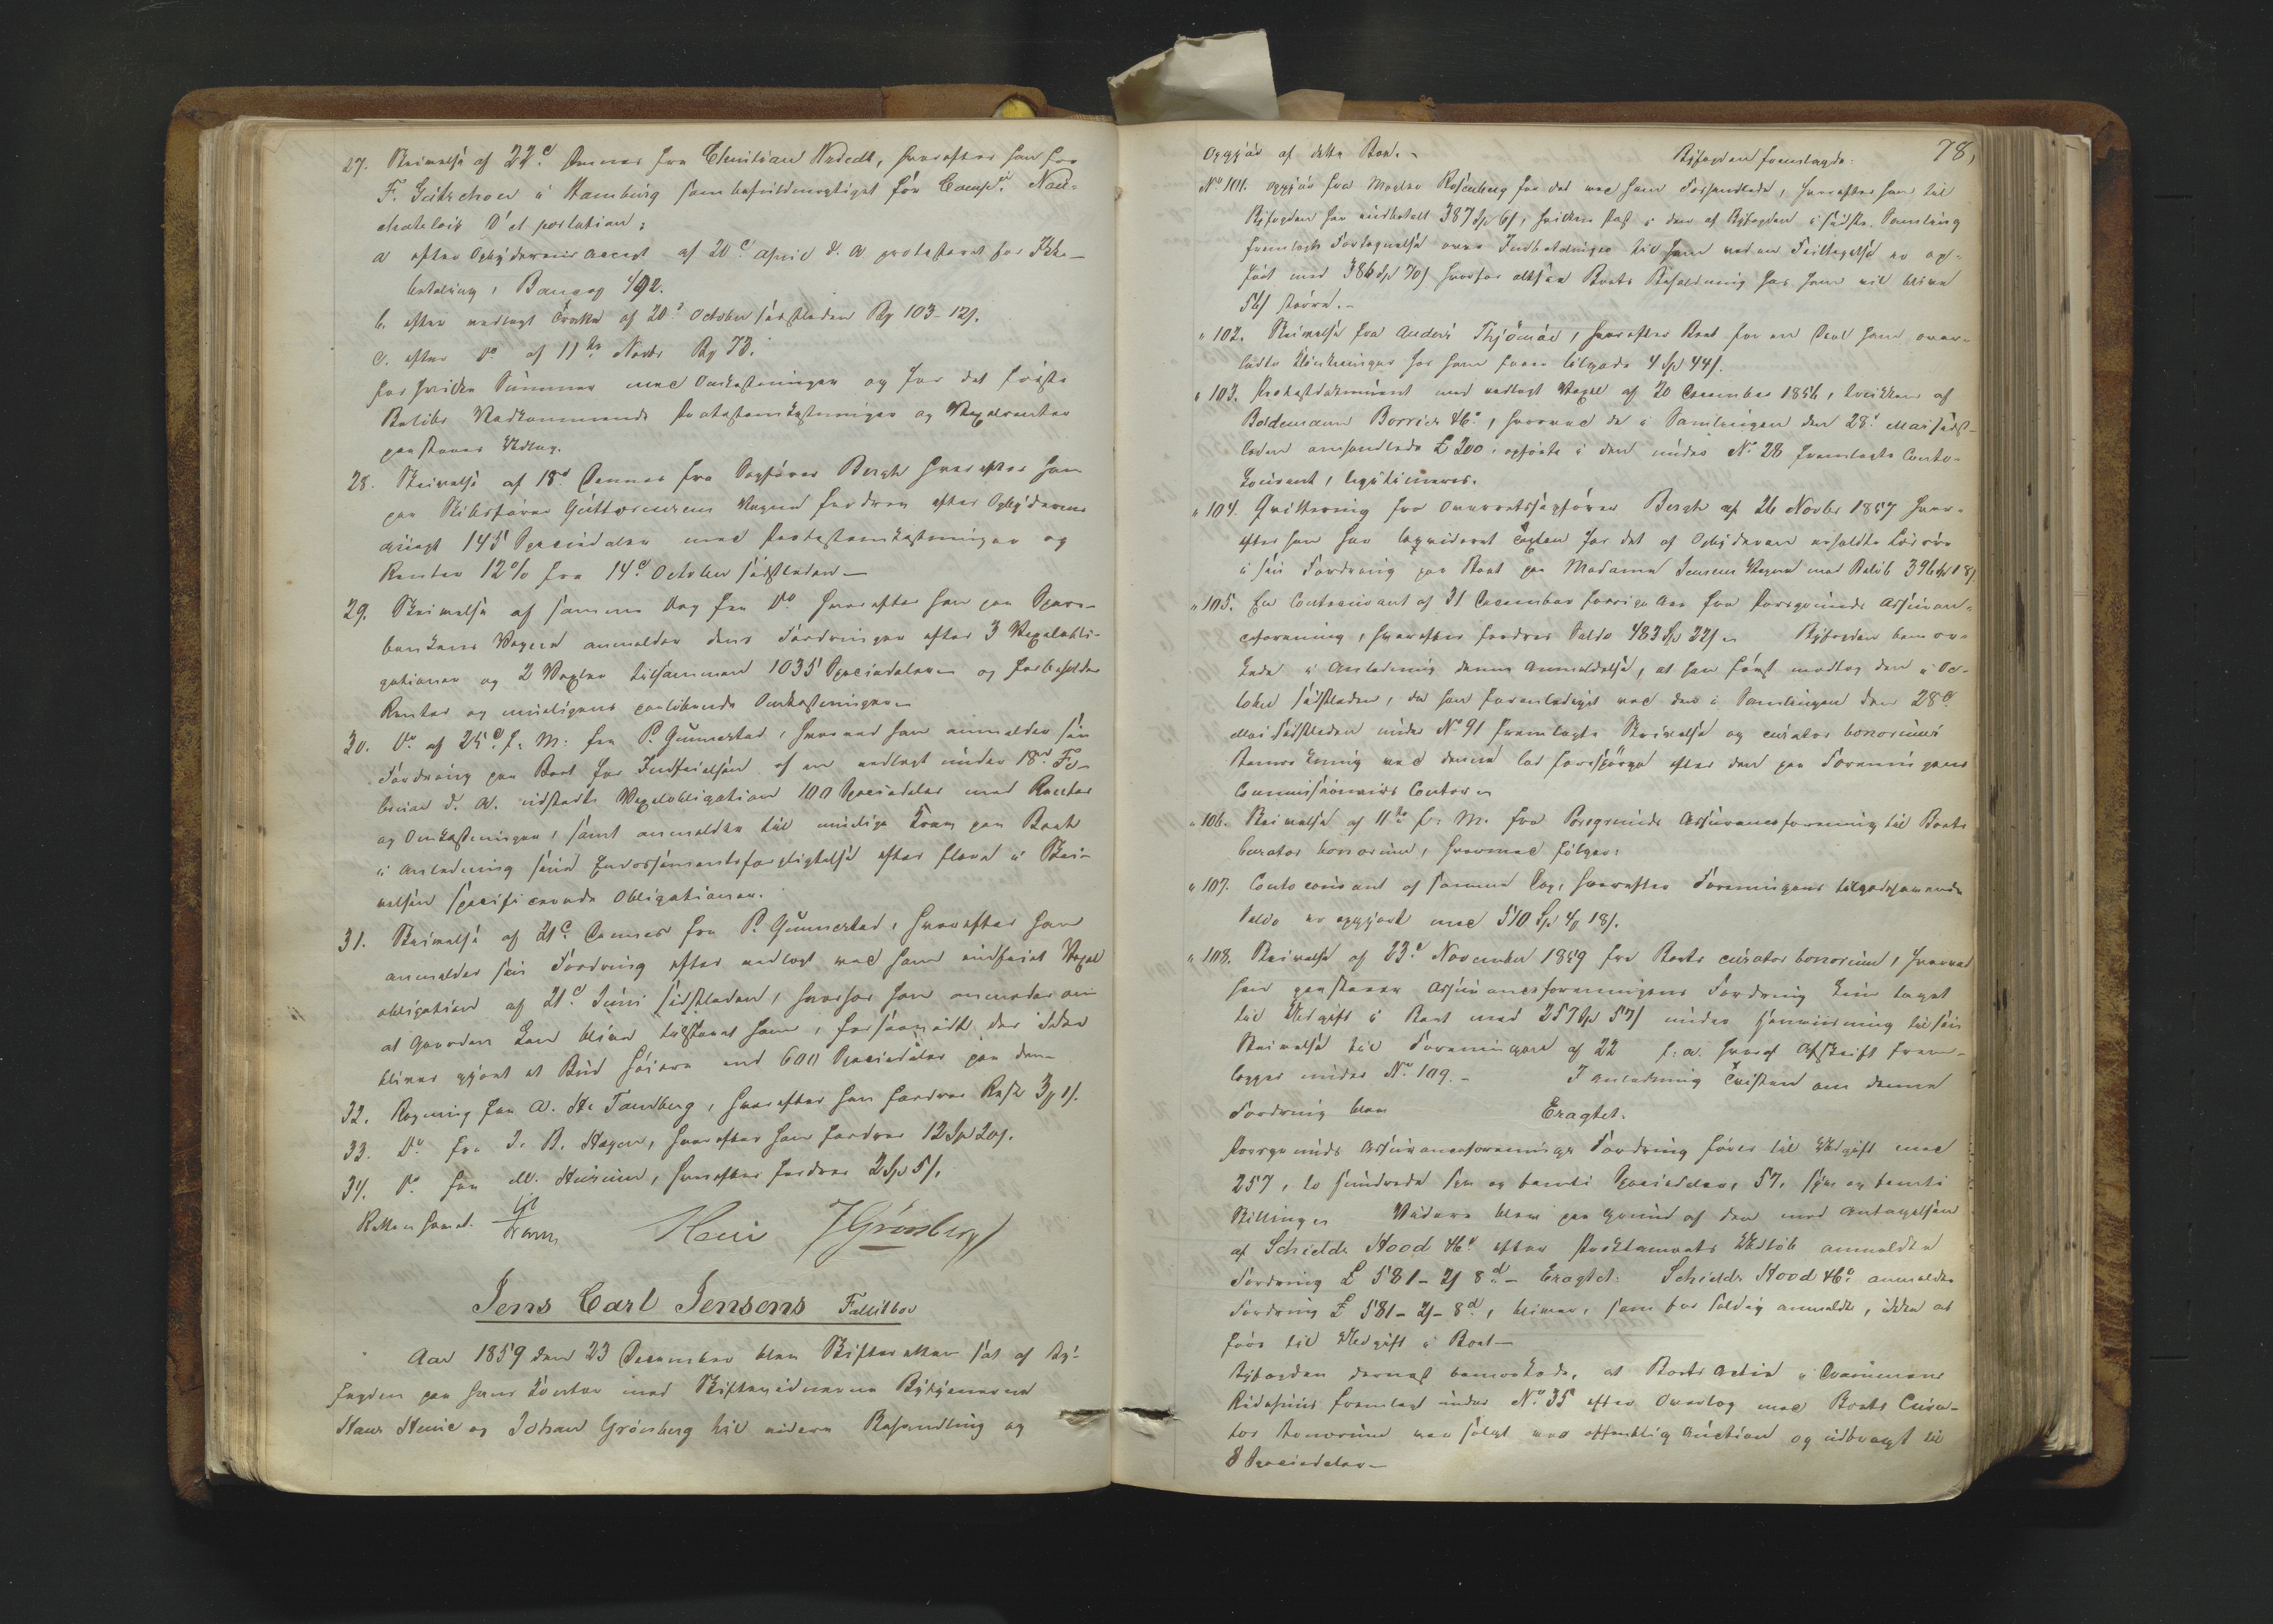 27. Skrivelse af 22d Dennes fra Christian Nededt, hvorefter han for
F. Gutschow i Hamburg som befuldmægtiget for Comp: Neu-
chateloise D'el portation:
a efter Opbyderens accept af 20d April d. A. protesteret for Ikke-
betaling, Banco  492.
b. efter vedlagt Tratte af 20d October sidstleden By 103-12ß.
c. efter Do af 11te Novbr By 73.
for hvilke Summer med Omkostninger og for det første
Beløbs Vedkommende Protestomkostninger og Vexelrenter
paastaaes Udlæg.
28. Skrivelse af 18d Dennes fra Sagfører Bergh hvorefter han
paa Skibsfører Guttormsens Vegne fordrer efter Opbyderens
accept 145 Speciedaler med Protestomkostninger og
Renter 12% fra 14d October sidstleden —
29. Skrivelse af samme Dag fra Do hvorefter han paa Spare-
bankens Vegne anmelder dens Fordringer efter 3 Vexelobli-
gationer og 2 Vexler tilsammen 1035 Speciedaler og forbeholder
Renter og muligens paaløbende Omkostninger
30. Do af 25d f. M: fra P. Gunnestad, hvorved han anmelder sin
Fordring paa Boet for Indfrielsen af en vedlagt under 18de Fe-
bruar d. A. udstedt Vexelobligation 100 Speciedaler med Renter
og Omkostninger, samt anmelder til mulige Krav paa Boet
i Anledning sine Endossementsforpligtelse efter flere i Skri-
velsen specificerede Obligationer.
31. Skrivelse af 21d Dennes fra P. Gunnestad, hvorefter han
anmelder sin Fordring efter vedlagt med ham indfriet Vexel
obligation af 21d Juni sidstleden, hvorhos han anmoder om
at Gaarden kan blive tilstaaet ham, forsaavidt der ikke
bliver gjort et Bud høiere end 600 Speciedaler paa den
32. Regning fra A. H. Tandberg, hvorefter han fordrer Rest 3  1ß.
33. Do fra J. B. Hagen, hvorefter han fordrer 12 Sp 20ß.
34. Do fra M. Husum, hvorefter fordres 2 Sp 5ß.
Retten hævet.
Heie J Grønsberg
Jens Carl Jensens Fallitbo
Aar 1859 den 23 December blev Skifteretten sat af By-
fogden paa hans Kontor med Skiftevidnerne Bytjenerne
Hans Henie og Johan Grønsberg til videre Behandling og
78,
Opgjør af dette Bo. – Byfogden fremlagde:
No 101. Opgjør fra Mægler Rosenberg for det ved ham Forhandlede, hvorefter han til
Byfogden har indbetalt 387 Sp 6ß, hvilken Post i den af Byfogden i sidste Samling
fremlagte Fortegnelse over Indbetalinger til ham ved en Feiltagelse er op-
ført med 386 Sp 70ß hvorfor altsaa Boets Beholdning hos ham vil blive
56ß større. –
" 102. Skrivelse fra Anders Thjømøe, hvorefter Boet for en Deel ham over-
ladte  hos ham haver tilgode 4 Sp 44ß.
" 103. Protestdokument med vedlagt Vexel af 20 December 1856, trukken af
Boldemann Borries & Co, hvorved de i Samlingen den 28d Mai sidst-
leden omhandlede £ 200, opførte i den under No 28 fremlagte Conto-
kourant, legitimeres.
" 104. Qvittering fra Overretssagfører Bergh af 26 Novbr 1857 hvor-
efter han har liqvideret  for det af Opbyderen erholdte Løsøre
i sin Fordring paa Boet paa Madame Jensens Vegne med Beløb 396 Sp 18ß
" 105. En Contocourant af 31 December forrige Aar fra Porsgrunds Assuran-
ceforening, hvorefter fordres Saldo 483 Sp 32ß Byfogden bemær-
kede i Anledning denne Anmeldelse, at han først modtog den i Oc-
tober sidstleden, da han foranlediget ved den i Samlingen den 28d
Mai sidstleden under No 91 fremlagte Skrivelse og curator bonorums
Bemærkning ved denne lod forespørge efter den paa Foreningens
Commissionairs Contor
" 106. Skrivelse af 11te f: M. fra Porsgrunds Assuranceforening til Boets
Curator bonorum, hvormed følger:
" 107. Conto courant af samme Dag, hvorefter Foreningens tilgodehavende
Saldo er opgjort med 510 Sp 4  18ß.
" 108. Skrivelse af 23d November 1859 fra Boets curator bonorum, hvorved
han paastaaer Assuranceforeningens Fordring kun taget
til Udgift i Boet med 257 Sp 57ß under Henviisning til sin
Skrivelse til Foreningen af 22 f: a. hvoraf Afskrift frem-
lægges under No 109. – I Anledning Tvisten om denne
Fordring blev Eragtet:
Porsgrunds Assuranceforenings Fordring føres til Udgift med
257, to hundrede syv og femti Speciedaler, 57, syv og femti
Skilling Videre blev paa Grund af den mod Antagelsen
af Schields Hood & Co efter Proklamaets Udløb anmeldte
Fordring £ 581 - 2ß 8d – Eragtet: Schields Hood & Co anmeldte
Fordring £ 581 - 2ß - 8d, bliver, som for sildig anmeldt, ikke at
føre til Udgift i Boet —
Byfogden dernæst bemærkede, at Boets Actie i Drammens
Ridehuus fremlagt under No 35 efter Overlæg med Boets Cura-
tor bonorum var solgt ved offentlig Auction og udbragt til
8 Speciedaler —